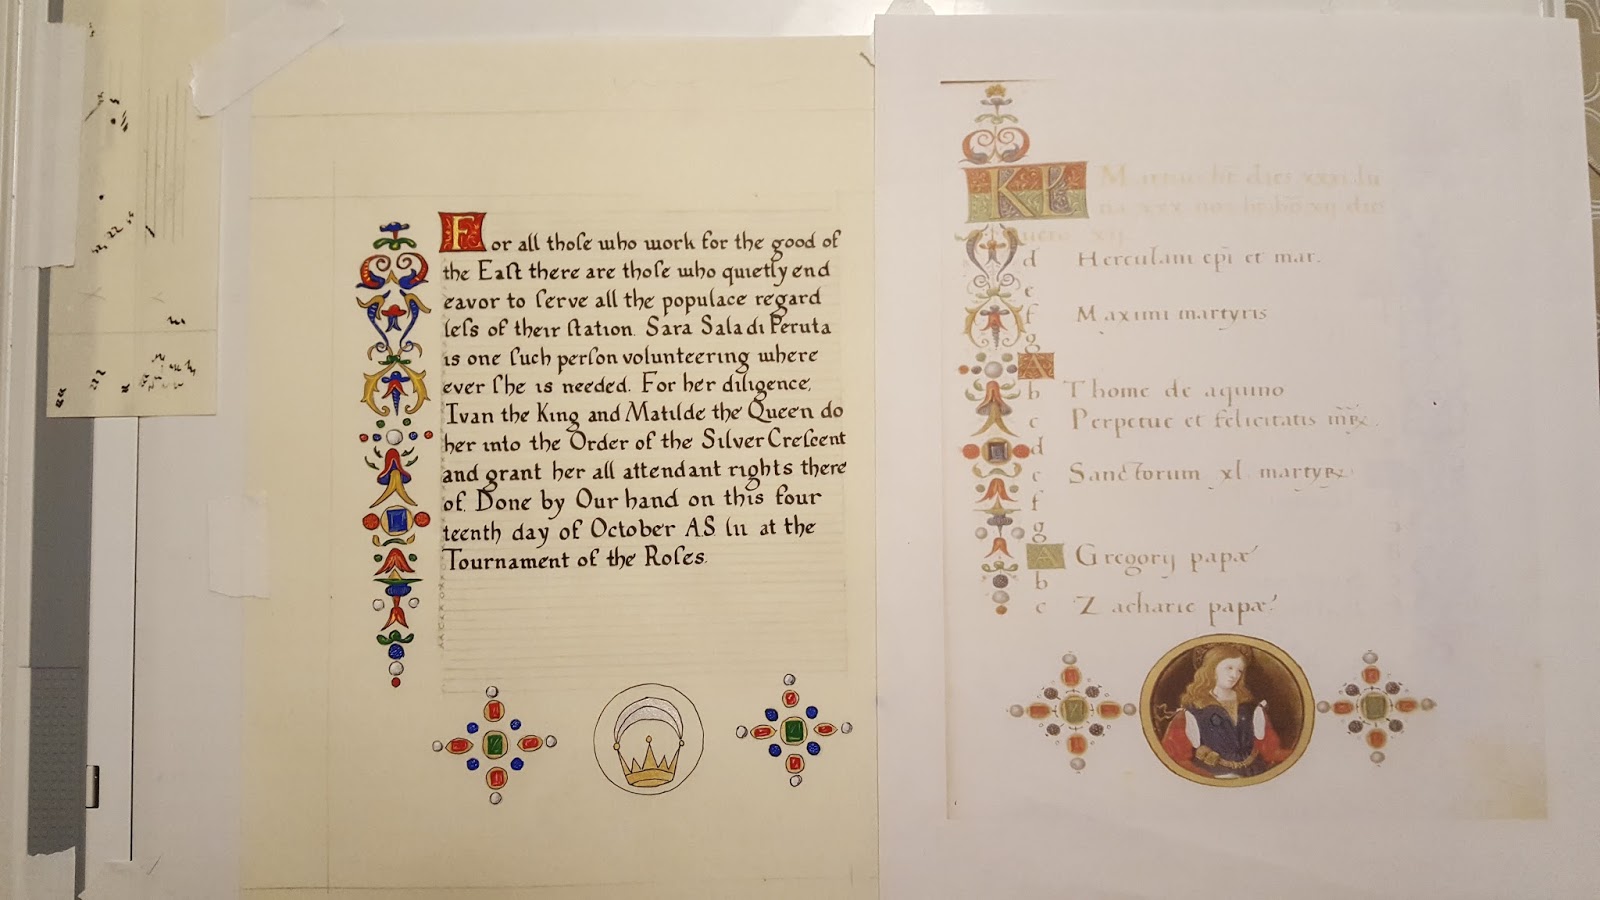 For all thoſe who work for the good of
the Eaſt there are thoſe who quietly end
eavor to ſerve all the populace regard
leſs of their ſtation. Sara Sala di Peruta
is one ſuch perſon volunteering where
ever ſhe is needed. For her diligence,
Ivan the King and Matilde the Queen do
her into the Order of the Silver Creſcent
and grant her all attendant rights there
of. Done by Our hand on this four
teenth day of October A.S. lii at the
Tournament of the Roſes.
KL
d Herculani epi et mar.
e
f Maximi martyris
g
A
b Thome de aquino
c Perpetue et felicitatis
d
e Sanctorum xl martyrꝝ
f
g
A Gregorij papæ
b
c Zacharie papæ